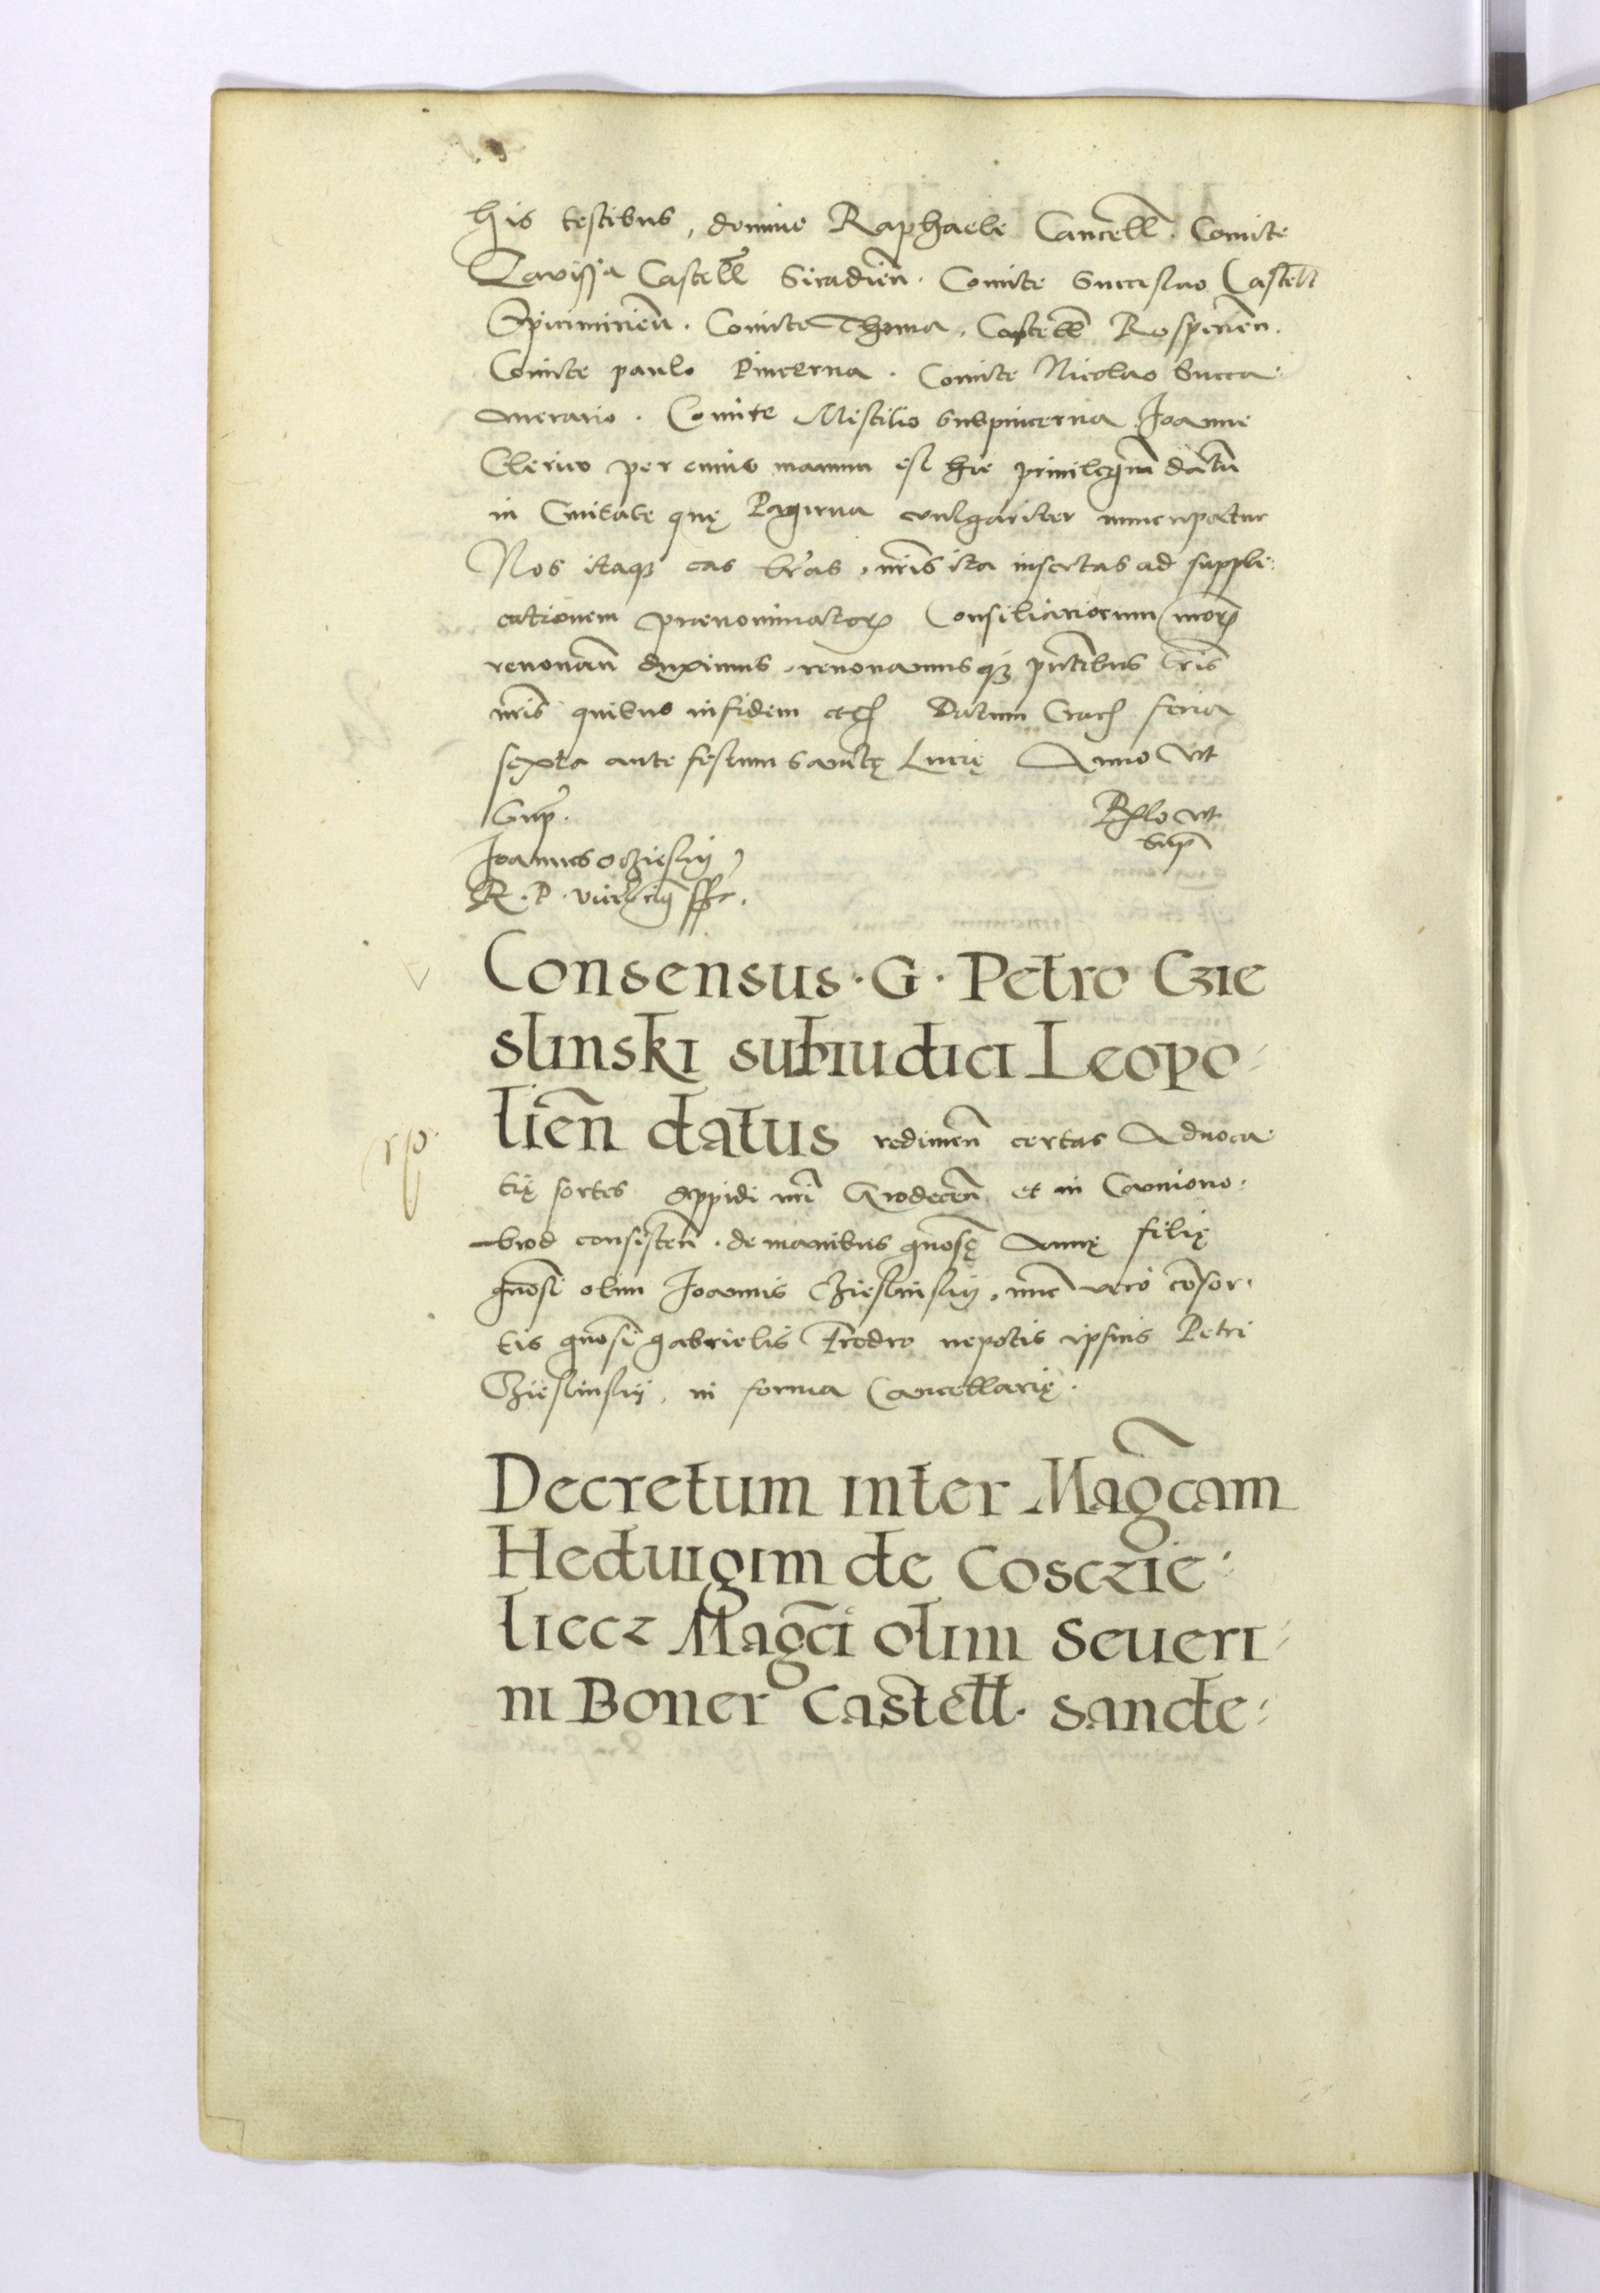 his testibus, domino Raphaele Cancell̄. Comite
Zavissa Castell̄ Siradien̄. Comite Succeslao Castell
Spicimirien̄. Comite Thoma. Castell̄ Rosperien̄.
Comite paulo Pincerna. Comite Nicolao Succa-
merario. Comite Mestilio Subpincerna. Joanne
Clerico per cuius manum est hic privilegiū datū
in Civitate quę vulgariter nuncupatur
Nos itaq3 eas lr̄as, nr̄is ita insertas ad suppli-
cationem praenominatorꝝ Consiliariorum nrorꝝ
renovan̄ duximus, renovamusq3 pn̄tibus lr̄is
nr̄is quibus in fidem etcꝫ Datum Cracꝫ feria
sexta ante festum Sanctę Lucię Anno ut
Sup̄.
Rꝫlo ut
Sup̄
Joannes Oczieskij
R. P. vicecanc̄ sst.
Consensus. G. Petro Czie
slinski subiudici Leopo-
lien̄ datus redimen̄ certas Advoca-
rꝫp.
tię sortes oppidi nr̄i Grodecen̄ et in Camiono-
brod consisten̄. de manibus gnosę Annę filię
gnosi olim Joannis Czieslinskij, nūc vero cōsor-
tis gnosi gabrielis Fredro nepotis ipsius Petri
Czieslinskij, in forma Cancellarię.
Decretum inter Mag̅cam
Heduigim de Cosczie-
liecz Mag̅ci olim Seueri-
ni Boner Castell. Sande-